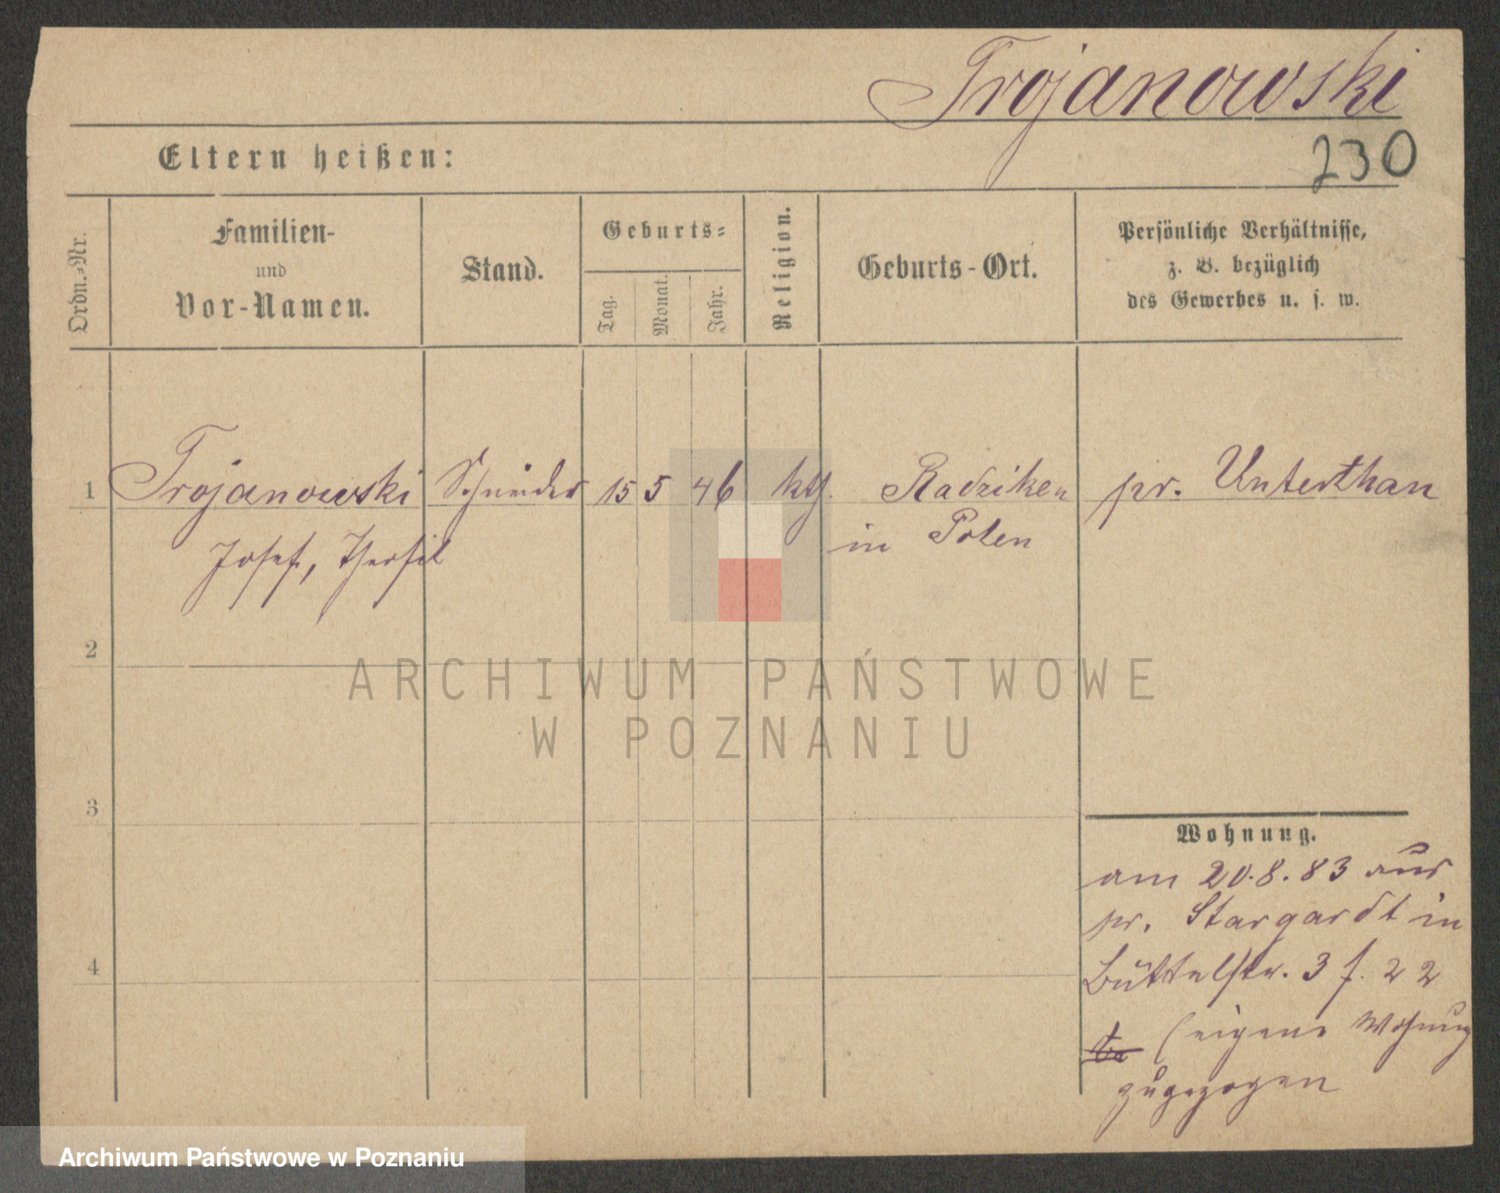 Trojanowski
230
Eltern heißen:
Ordn.-Nr.
Familien-
und
Vor-Namen.
Stand.
Geburts-
Tag.
Monat.
Jahr.
Religion.
Geburts-Ort.
Persönliche Verhältnisse,
z. B. bezüglich
des Gewerbes u. s. w.
1 Trojanowski Schneider 15 5 46 kth. Radziken pr. Unterthan
Josef, in Polen
2
3
4
ARCHIWUM PAŃSTWOWE
W POZNANIU
Wohnung.
am 20.8.83 aus
pr. Stargardt in
Büttelstr. 3 f. 22
(eigene Wohnung
zugezogen
Archiwum Państwowe w Poznaniu